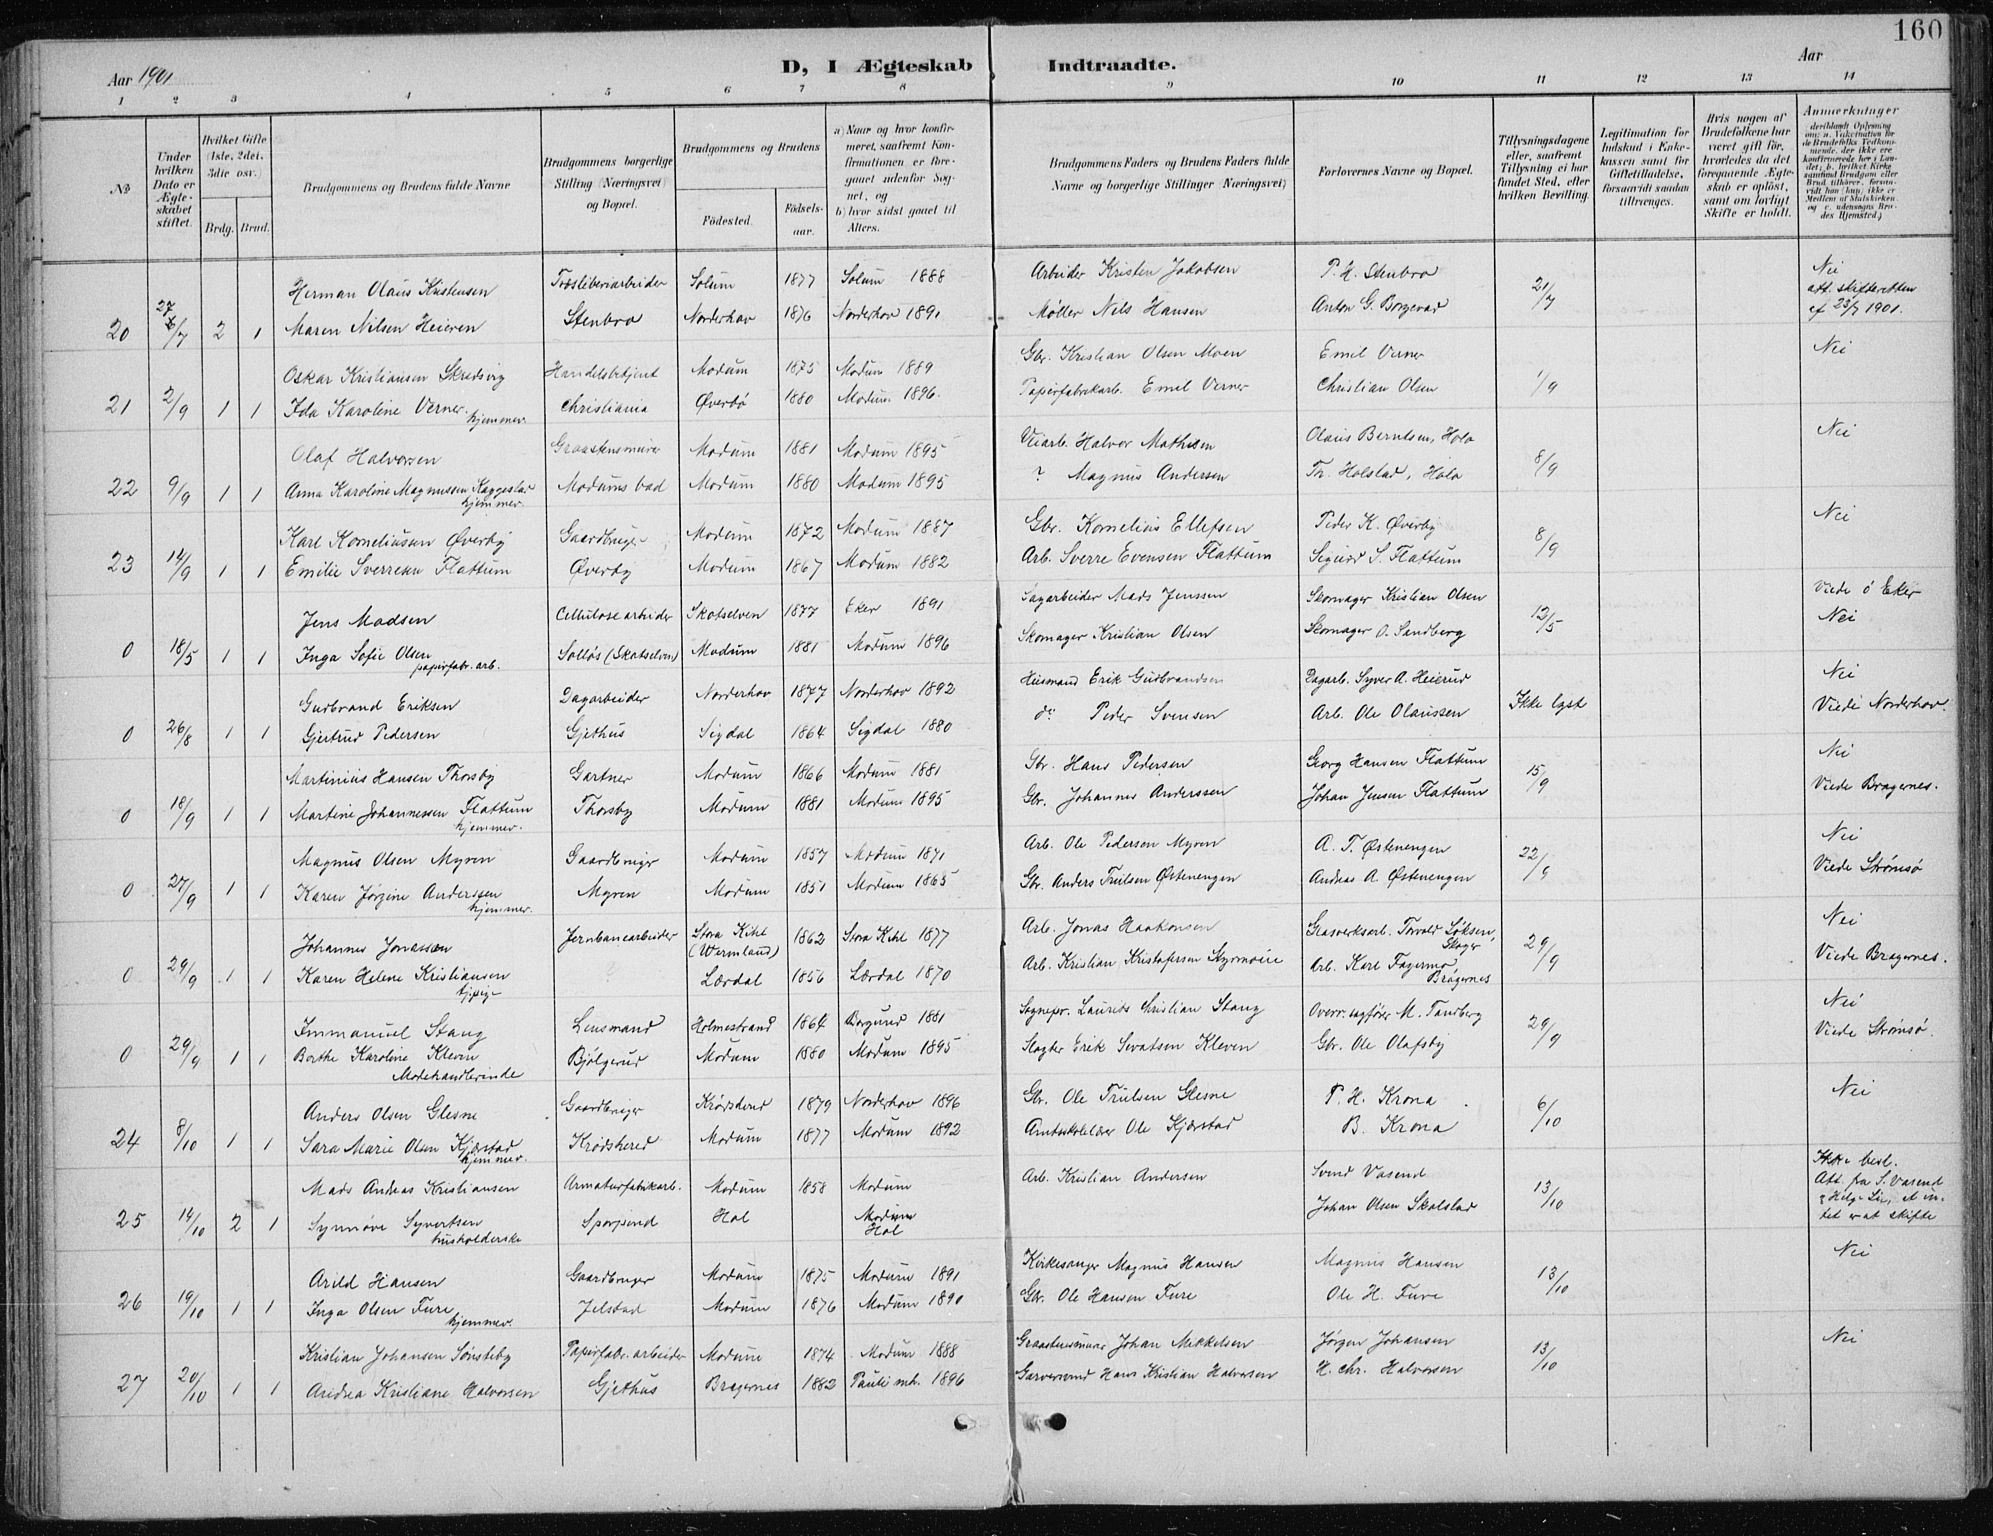 160
D, I Ægteskab Indtraadte.
Aar 1901
Aar
1 2 3 4 5 6 7 8 9 10 11 12 13 14
№
Under hvilken Dato er Ægteskabet stiftet.
Hvilket Gifte (1ste, 2det, 3die osv.)
Brdg. Brud.
Brudgommens og Brudens fulde Navne
Brudgommens borgerlige Stilling (Næringsvei) og Bopæl.
Brudgommens og Brudens
Födested. Födsels-aar.
a) Naar og hvor konfirmeret, saafremt Konfirmationen er foregaaet udenfor Sognet, og
b) hvor sidst gaaet til Alters.
Brudgommens Faders og Brudens Faders fulde Navne og borgerlige Stillinger (Næringsvei)
Forlovernes Navne og Bopæl.
Tillysningsdagene eller, saafremt Tillysning ei har fundet Sted, efter hvilken Bevilling.
Legitimation for Indskud i Enkekassen samt for Giftetilladelse, forsaavidt saadan tiltrænges.
Hvis nogen af Brudefolkene har været gift för, hvorledes da det foregaaende Ægteskab er oplöst, samt om lovligt Skifte er holdt.
Anmærkninger
Herman Olaus Kristensen Træsliberiarbeider Solum 1877 Solum 1888 Arbeider Kristen Jakobsen P. H. Stenbro 21/7 Nei
att. skifteretten
af 23/7 1901.
20 27/7 2 1 Maren Nilsen Heieren Stenbro Norderhov 1876 Norderhov 1891 Møller Nils Hansen Anton G. Borgevad
Oskar Kristiansen Skredsvig Handelsbetjent Modum 1875 Modum 1889 Gbr. Kristian Olsen Moen Emil Verner 1/9 Nei
21 2/9 1 1 Ida Karoline Verner hjemmev. Christiania Øverbö 1880 Modum 1896. Papirfabrikarb. Emil Verner Christian Olsen
Olaf Halvorsen Graastensmurer Modum 1881 Modum 1895 Veiarb. Halvor Mathisen Olaus Berntsen, Holo 8/9 Nei
22 9/9 1 1 Anna Karoline Magnussen Kaggestad hjemmev. Modums bad Modum 1880 Modum 1895 ? Magnus Andersen Th. Holstad, Holo
Karl Korneliussen Øverby Gaardbruger Modum 1872 Modum 1887 Gbr. Kornelius Ellefsen Peder K. Øverby 8/9 Nei
23 14/9 1 1 Emilie Sverresen Flattum Øverby Modum 1867 Modum 1882 Arb. Sverre Evensen Flattum Sigurd S. Flattum
Jens Madsen Cellulosearbeider Skotselven 1877 Eker 1891 Sagarbeider Mads Jenssen Skomager Kristian Olsen 12/5 Viede ö Eker
Nei
0 18/5 1 1 Inga Sofie Olsen papirfabr. arb. Solløs (Skotselven) Modum 1881 Modum 1896 Skomager Kristian Olsen Skomager O. Sandberg
Gudbrand Eriksen Dagarbeider Norderhov 1877 Norderhov 1892 Husmand Erik Gudbrandsen Dagarb. Syver A. Heierud Ikke lyst Nei
Viede Norderhov.
0 26/8 1 1 Gjertrud Pedersen Gjethus Sigdal 1864 Sigdal 1880 do Peder Svensen Arb. Ole Olaussen
Martinius Hansen Thorsby Gartner Modum 1866 Modum 1881 Gbr. Hans Pedersen Georg Hansen Flattum 15/9 Nei
Viede Bragernes.
0 18/9 1 1 Martine Johannessen Flattum hjemmev. Thorsby Modum 1881 Modum 1895 Gbr. Johannes Anderssen Johan Jensen Flattum
Magnus Olsen Myren Gaardbruger Modum 1857 Modum 1871 Arb. Ole Pedersen Myren A. T. Østenengen 22/9 Nei
Viede Strømsö
0 27/9 1 1 Karen Jørgine Anderssen hjemmev. Myren Modum 1851 Modum 1865 Gbr. Anders Trulsen Østenengen Andreas A. Østenengen
Johannes Jonassen Jernbanearbeider Stora Kihl (Wermland) 1862 Stora Kihl 1877 Arb. Jonas Haakonsen Grasverksarb. Torvald Søksen, Skoger 29/9 Nei
Viede Bragernes.
0 29/9 1 1 Karen Helene Kristiansen ? Lærdal 1856 Lærdal 1870 Arb. Kristian Kristofersen Arb. Karl Fagermo, Bragernes
Immanuel Stang Lensmand Holmestrand 1864 Borgund 1881 Sognepr. Laurits Christian Stang Overr.sagfører M. Tandberg 29/9 Nei
Viede Strømsø.
0 29/9 1 1 Berthe Karoline Kleven Modehandlerinde Bjölgerud Modum 1880 Modum 1895 Slagter Erik Sivatsen Kleven Gbr. Ole Olafsby
Anders Olsen Glesne Gaardbruger Krödsherred 1879 Norderhov 1896 Gbr. Ole Trulsen Glesne P. H. Krona 6/10 Nei
24 8/10 1 1 Sara Marie Olsen Kjørstad hjemmev. Krödsherred Modum 1877 Modum 1892 Amtsskolelærer Ole Kjørstad B. Krona
Mads Andreas Kristiansen Armaturfabrikarb. Modum 1858 Modum Arb. Kristian Andersen Svend Vasend 13/10 Ikke besl.
Att. fra S. Vasend
g Helge Lie, at in-
tet er at skifte
25 14/10 2 1 Synnøve Syvertsen husholderske Hol Modum
Hol Johan Olsen Skalstad
Arild Hansen Gaardbruger Modum 1875 Modum 1891 Kirkesanger Magnus Hansen Magnus Hansen 13/10 Nei
26 19/10 1 1 Inga Olsen Fure hjemmev. Jelstad Modum 1876 Modum 1890 Gbr. Ole Hansen Fure Ole H. Fure
Kristian Johansen Sønsteby Papirfabr. arbeider Modum 1874 Modum 1888 Graastensmurer Johan Mikkelsen Jørgen Johansen 13/10 Nei
27 20/10 1 1 Andrea Kristiane Halvorsen Gjethus Bragernes 1882 Pauli mh. 1896 Garversvend Hans Kristian Halvorsen H. Chr. Halvorsen